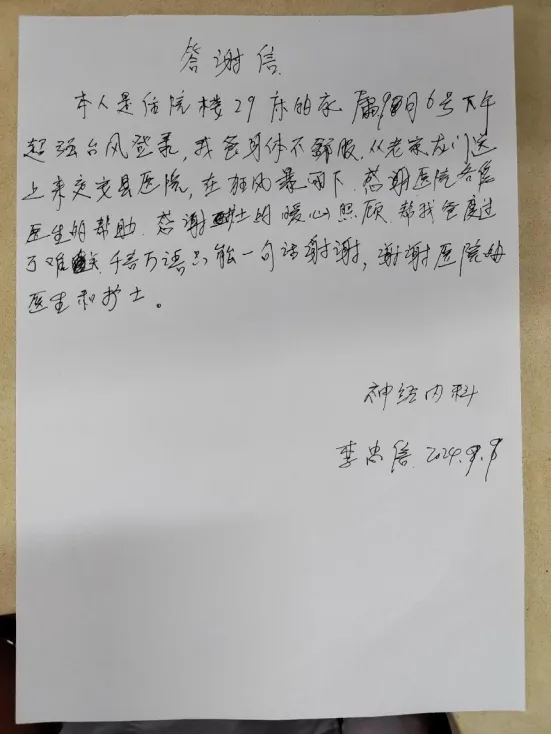 答谢信
本人是住院楼29床的家属,9月6号下午
超强台风登录,我爸身体不舒服.从老家龙门送
上来交县医院,在狂风暴雨下.感谢医院各位
医生的帮助.感谢护士的暖心照顾.帮我爸度过
了难关.千言万语只能一句话谢谢,谢谢医院的
医生和护士。
神经内科
李忠信.2024.9.9